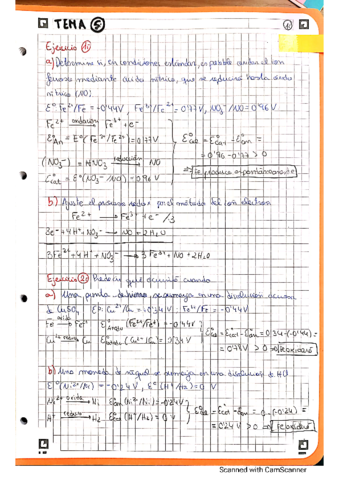 TEMA 5
1
Ejercicio 1:
a) Determina si, en condiciones estándar, es posible oxidar el ion
ferroso mediante ácido nítrico, que se reducirá hasta óxido
nítrico (NO)
E° Fe²⁺/Fe = -0'44V, Fe³⁺/Fe²⁺ = 0'77V, NO₃⁻/NO = 0'96V
Fe²⁺ oxidación Fe³⁺ + e⁻
E°An = E°(Fe³⁺/Fe²⁺) = 0'77V
E°cel = E°cat - E°an =
= 0'96 - 0'77 > 0
(NO₃⁻) = HNO₃ reducción NO
E°cat = E°(NO₃⁻/NO) = 0'96V
⇒ Se produce espontáneamente
b) Ajuste el proceso redox por el método del ion electrón
Fe²⁺ → Fe³⁺ + e⁻ /3
3e⁻ + 4H⁺ + NO₃⁻ → NO + 2H₂O
3Fe²⁺ + 4H⁺ + NO₃⁻ → 3Fe³⁺ + NO + 2H₂O
Ejercicio 2: Predecir que ocurrirá cuando
a) Una punta de hierro se sumerja en una disolución acuosa
de CuSO₄ E°: Cu²⁺/Cu = 0'34V Fe²⁺/Fe = -0'44V
Fe oxida Fe²⁺ E°Ánodo (Fe²⁺/Fe) = -0'44V
Cu²⁺ reduce Cu (Cu²⁺/Cu) = 0'34V
E°cel = E°cat - E°an = 0'34 - (-0'44) =
= 0'78V > 0 ⇒
b) Una moneda de níquel se sumerja en una disolución de HCl
E°(Ni²⁺/Ni) = -0'24V, E°(H⁺/H₂) = 0V
H⁺ reduce H₂ E°cat (H⁺/H₂) = 0V
E°cel = E°cat - E°an = 0 - (-0'24) =
= 0'24V > 0 ⇒
Scanned with CamScanner